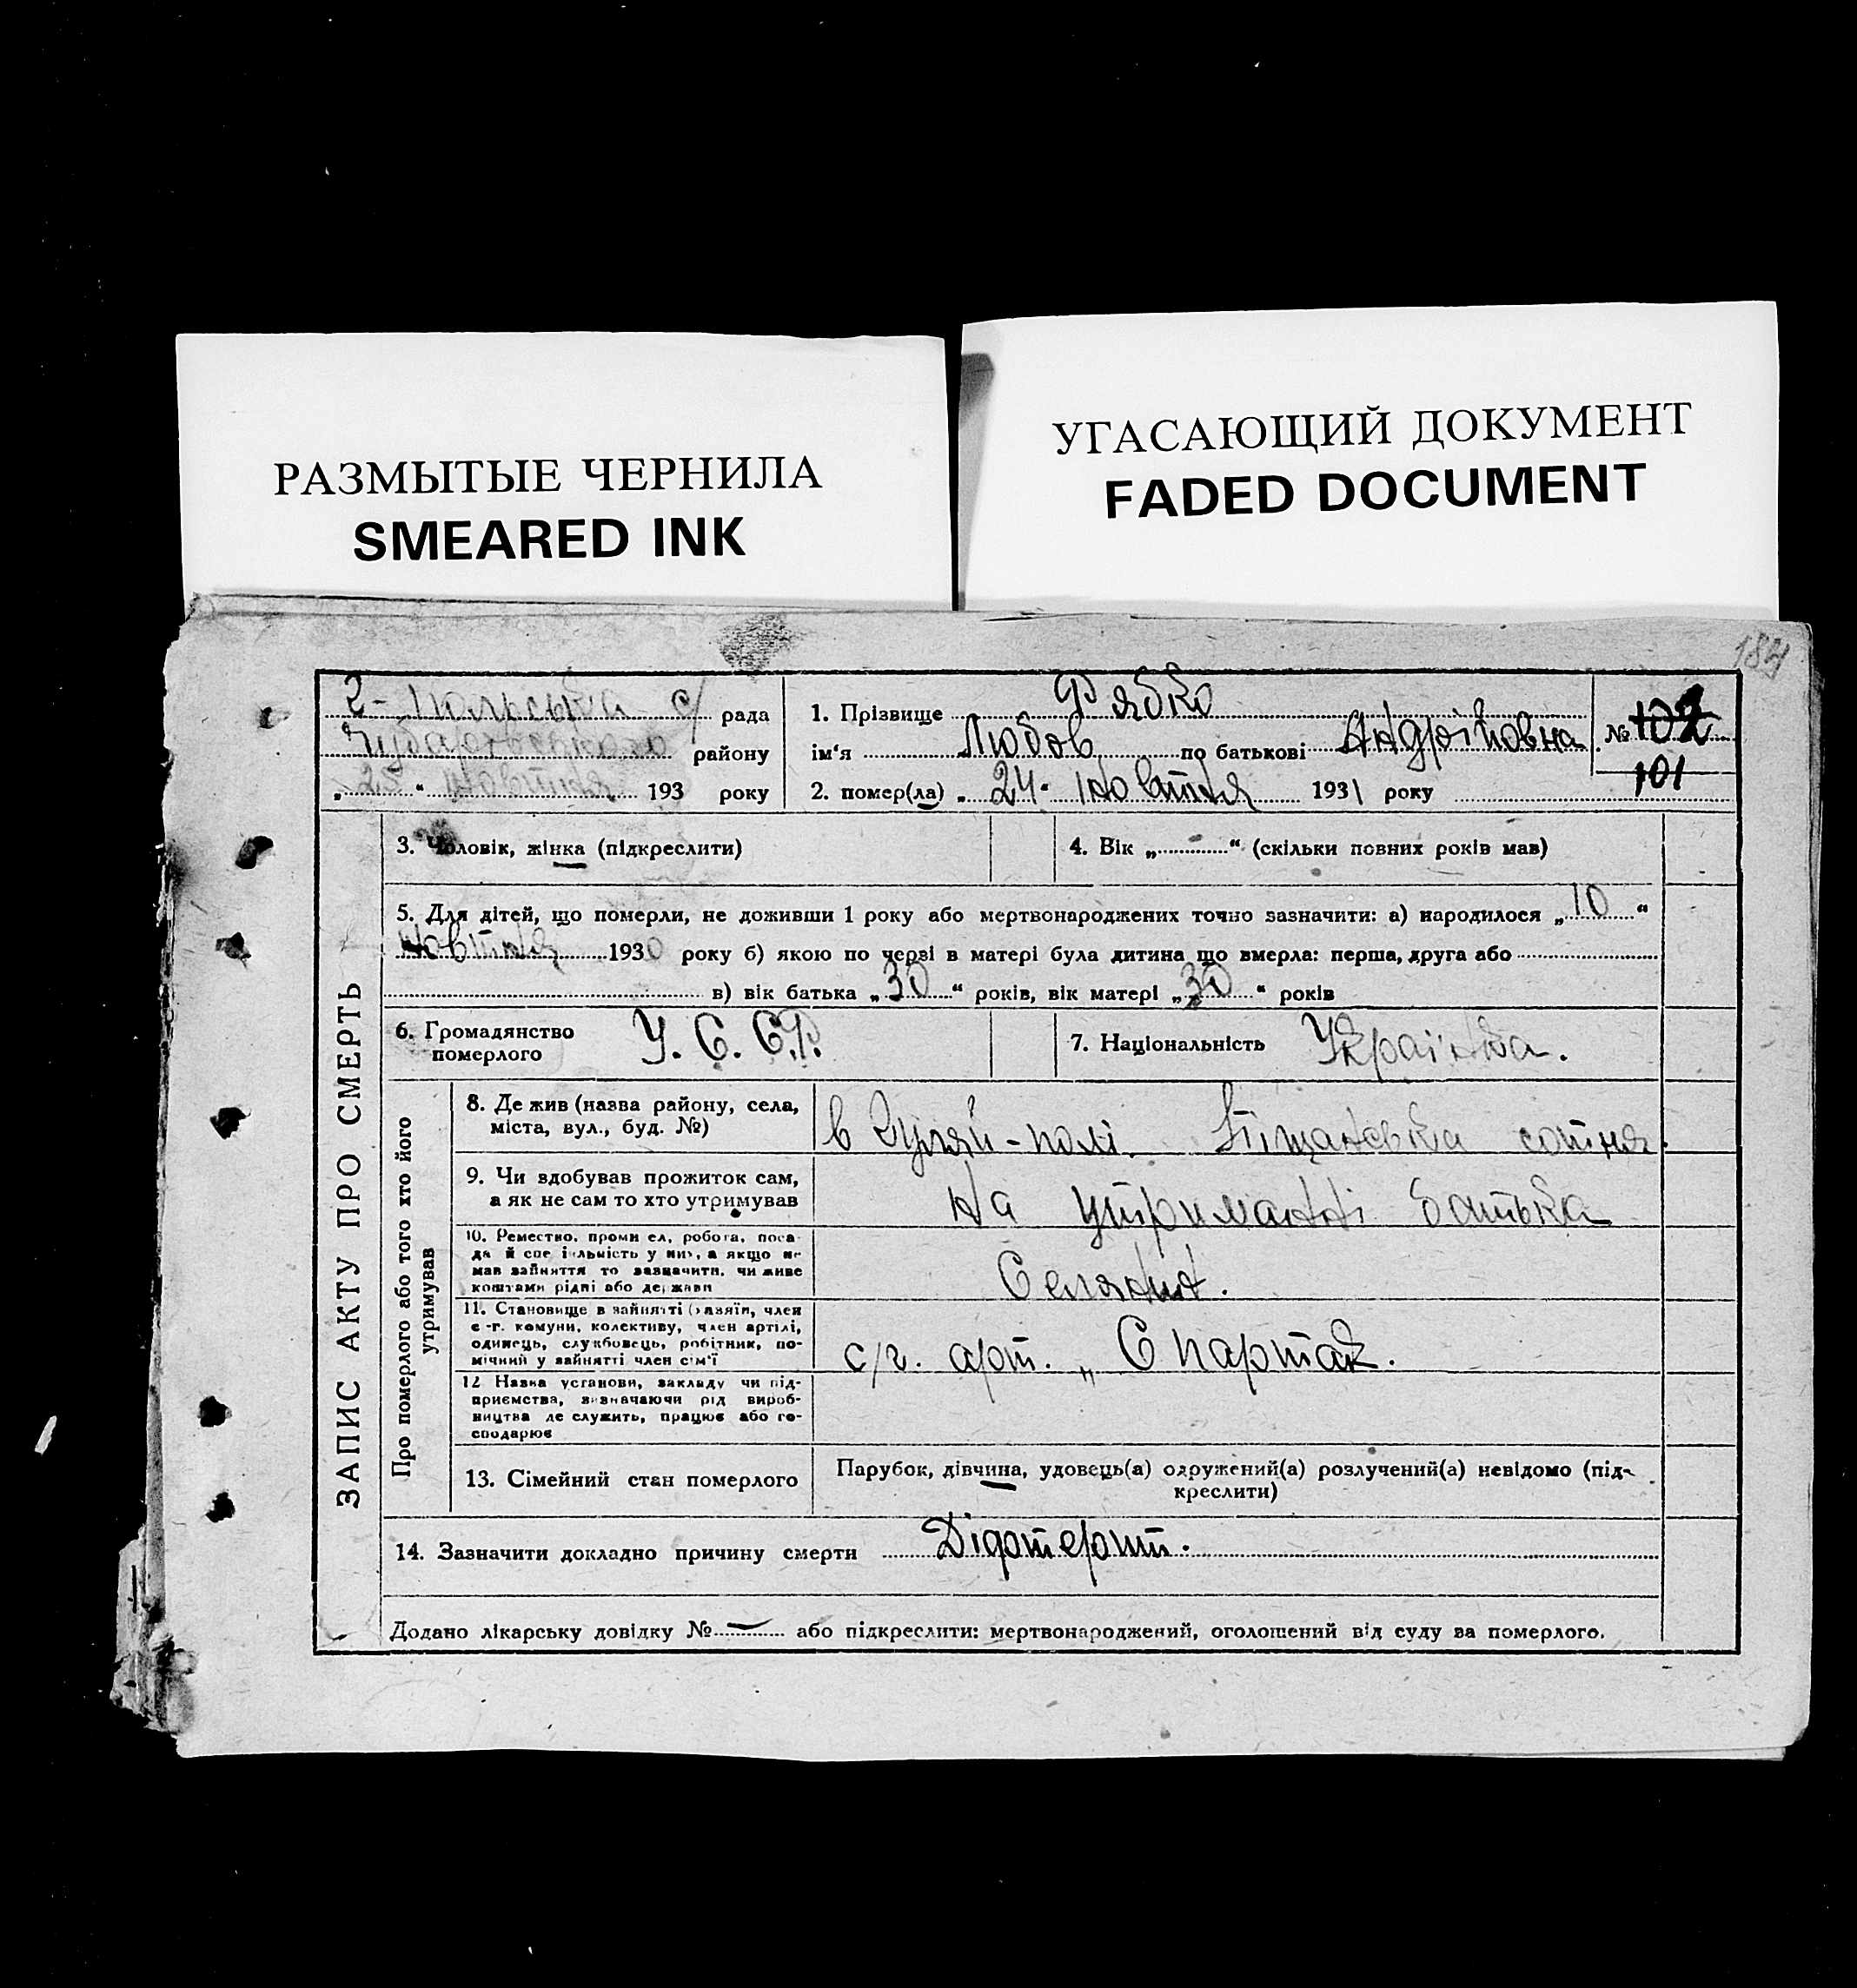 РАЗМЫТЫЕ ЧЕРНИЛА
SMEARED INK
УГАСАЮЩИЙ ДОКУМЕНТ
FADED DOCUMENT
с/ рада
району
" 25 " Жовтня 193 року
1. Прізвище Рябко
ім'я Любов по батькові Андрійовна
2. помер(ла) „ 24 " Жовтня 1931 року
№ 102
101
ЗАПИС АКТУ ПРО СМЕРТЬ
3. Чоловік, жінка (підкреслити)
4. Вік „ - “ (скільки повних років мав)
5. Для дітей, що померли, не доживши 1 року або мертвонароджених точно зазначити: а) народилося „ 10 “
Жовтня 1930 року б) якою по черзі в матері була дитина що вмерла: перша, друга або
в) вік батька „ 30 “ років, вік матері „ 30 “ років
6. Громадянство померлого У. С. С.Р.
7. Національність Українка.
Про померлого або того хто його утримував
8. Де жив (назва району, села,
міста, вул., буд. №)
в Гуляй-полі. сотня.
9. Чи вдобував прожиток сам,
а як не сам то хто утримував
На утриманні батька
10. Ремество, проми ел, робота, поса-
да й спе іальність у них, а якщо не
мав зайняття то зазначити, чи живе
коштами рідні або держави
Селянин.
11. Становище в зайнятті (хазяїн, член
с-г. комуни, колективу, член артілі,
одинець, службовець, робітник, по-
мічний у зайнятті член сім'ї
с/г. арт. „Спартак.
12 Назва установи, закладу чи під-
приємства, визначаючи рід вироб-
ництва де служить, працює або го-
сподарює
13. Сімейний стан померлого
Парубок, дівчина, удовець(а) одружений(а) розлучений(а) невідомо (під-
креслити)
14. Зазначити докладно причину смерти
Додано лікарську довідку № — або підкреслити: мертвонароджений, оголошений від суду за померлого.